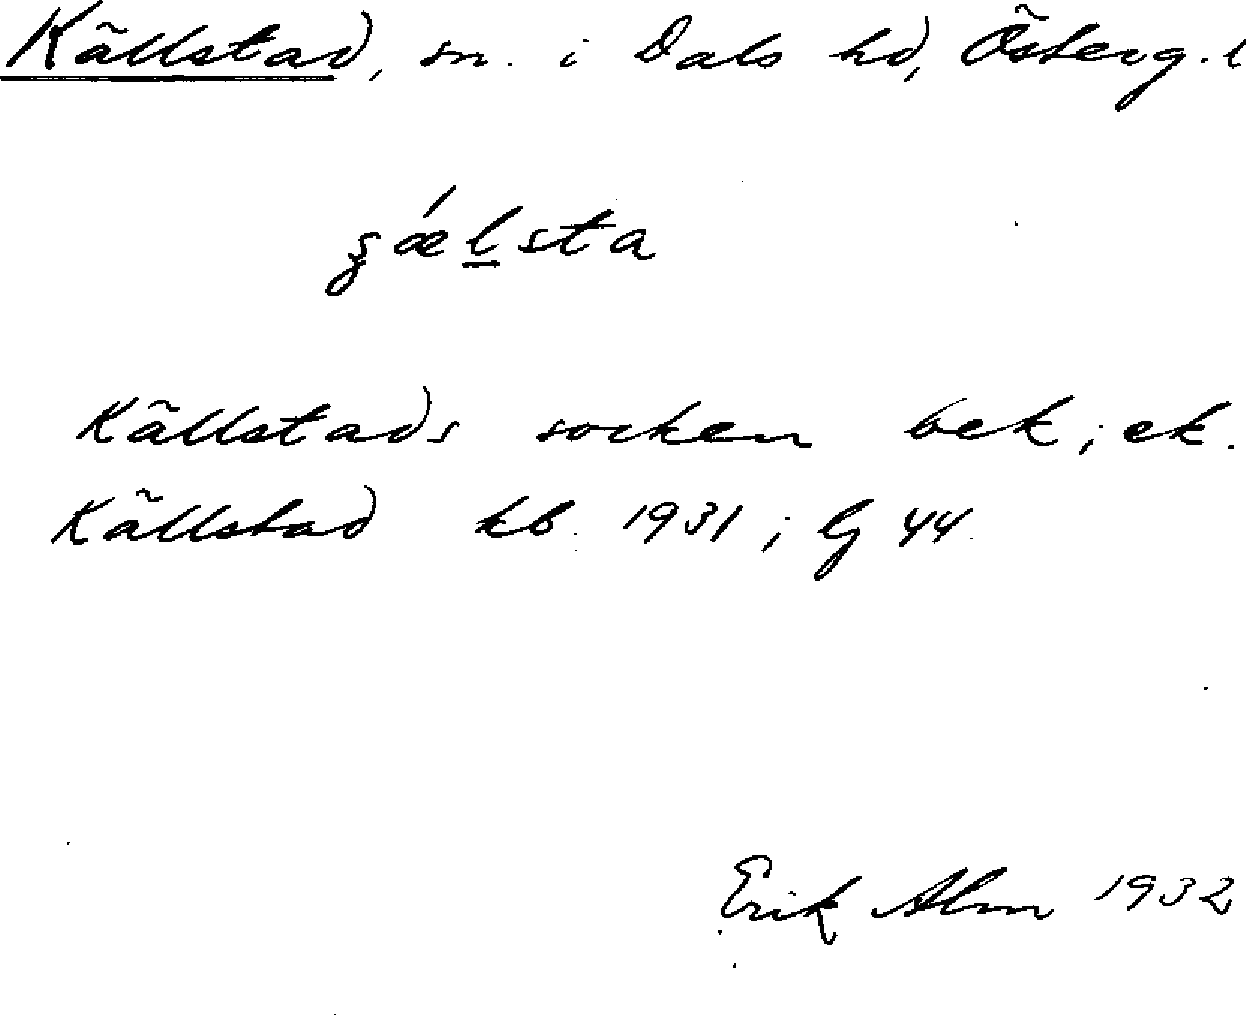 Källstad, sn. i Dals hd, Österg. l
ʂǽlsta
Källstads socken bek; ek.
Källstad kb. 1931; lj 44
Erik Alm 1932